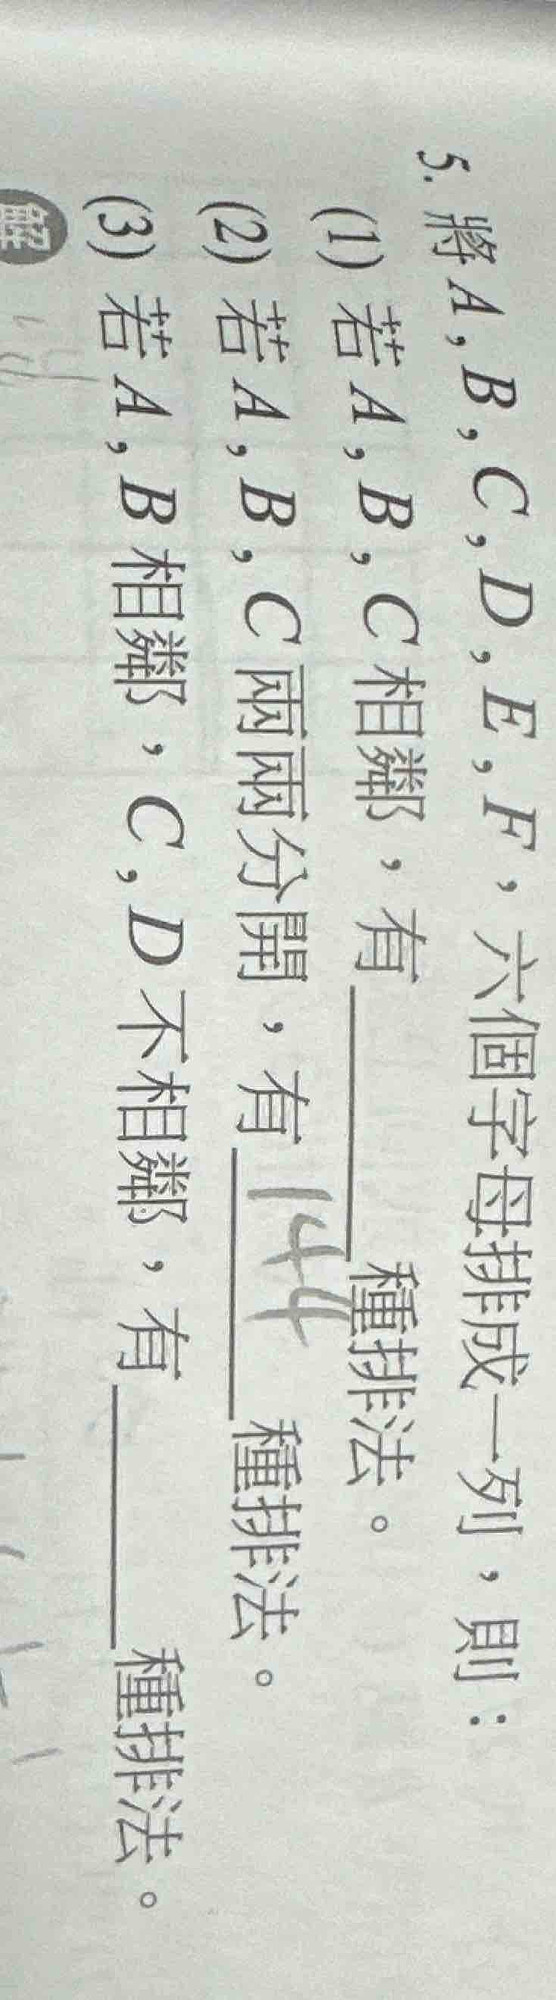 5. 將A,B,C,D,E,F,六個字母排成一列,則:
(1) 若A,B,C相鄰,有______種排法。
(2) 若A,B,C兩兩分開,有 144 種排法。
(3) 若A,B相鄰,C,D不相鄰,有______種排法。
解